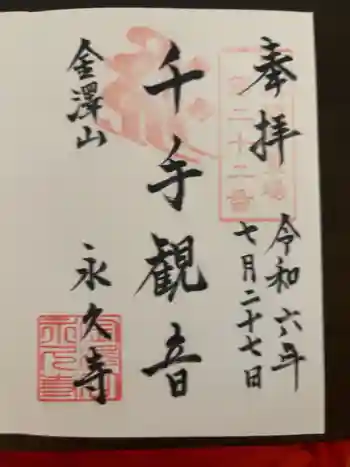 奉拝
令和六年
七月二十七日
千手観音
金澤山
永久寺